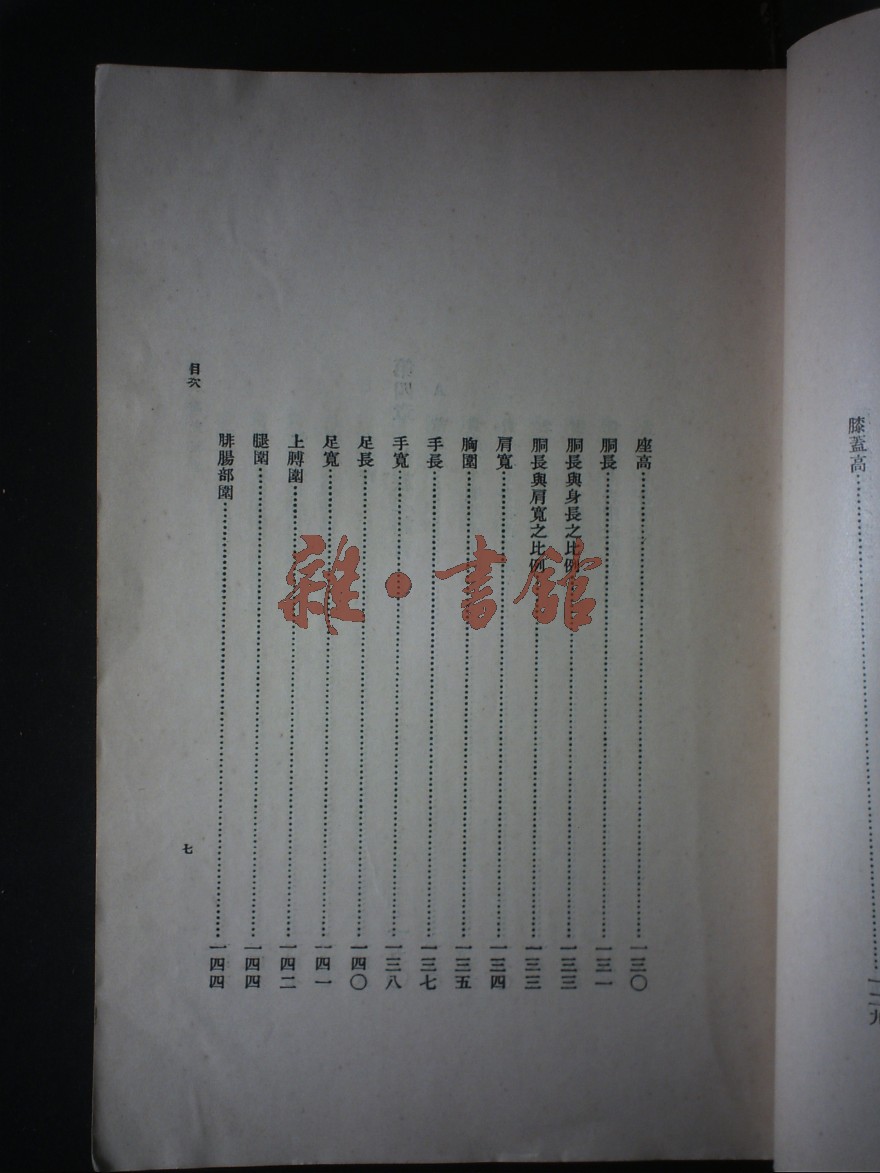 膝蓋高……一二九
座高……一三〇
胴長……一三一
胴長與身長之比例……一三三
胴長與肩寬之比例……一三三
肩寬……一三四
胸圍……一三五
手長……一三七
手寬……一三八
足長……一四〇
足寬……一四一
上膊圍……一四二
腿圍……一四四
腓腸部圍……一四四
目次
七
雜·書館